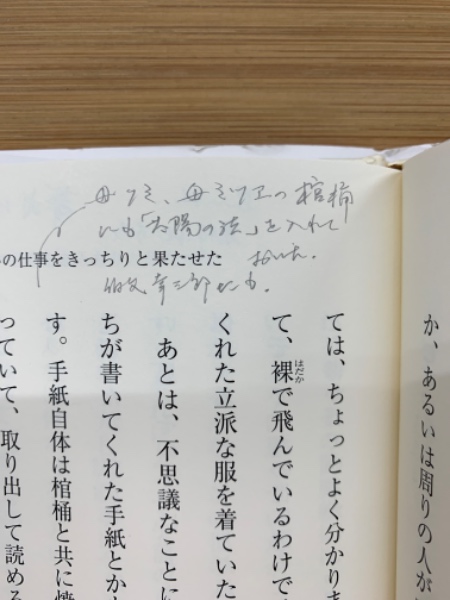 母クミ、母ミツエの棺桶
にも「太陽の法」を入れて
おいた。
伯父幸三郎にも。
の仕事をきっちりと果たせた
か、あるいは周りの人が
ては、ちょっとよく分かりま
て、裸で飛んでいるわけで
はだか
くれた立派な服を着ていた
あとは、不思議なことに
ちが書いてくれた手紙とか
す。手紙自体は棺桶と共に焼
っていて、取り出して読める